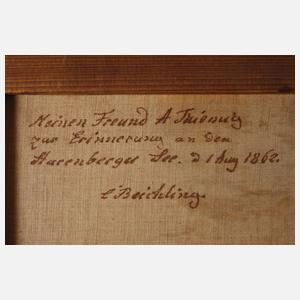 Meinen Freund A Thiemig
zur Erinnerung an den
Starenberger See. d 1 Aug 1862.
C Beichling.